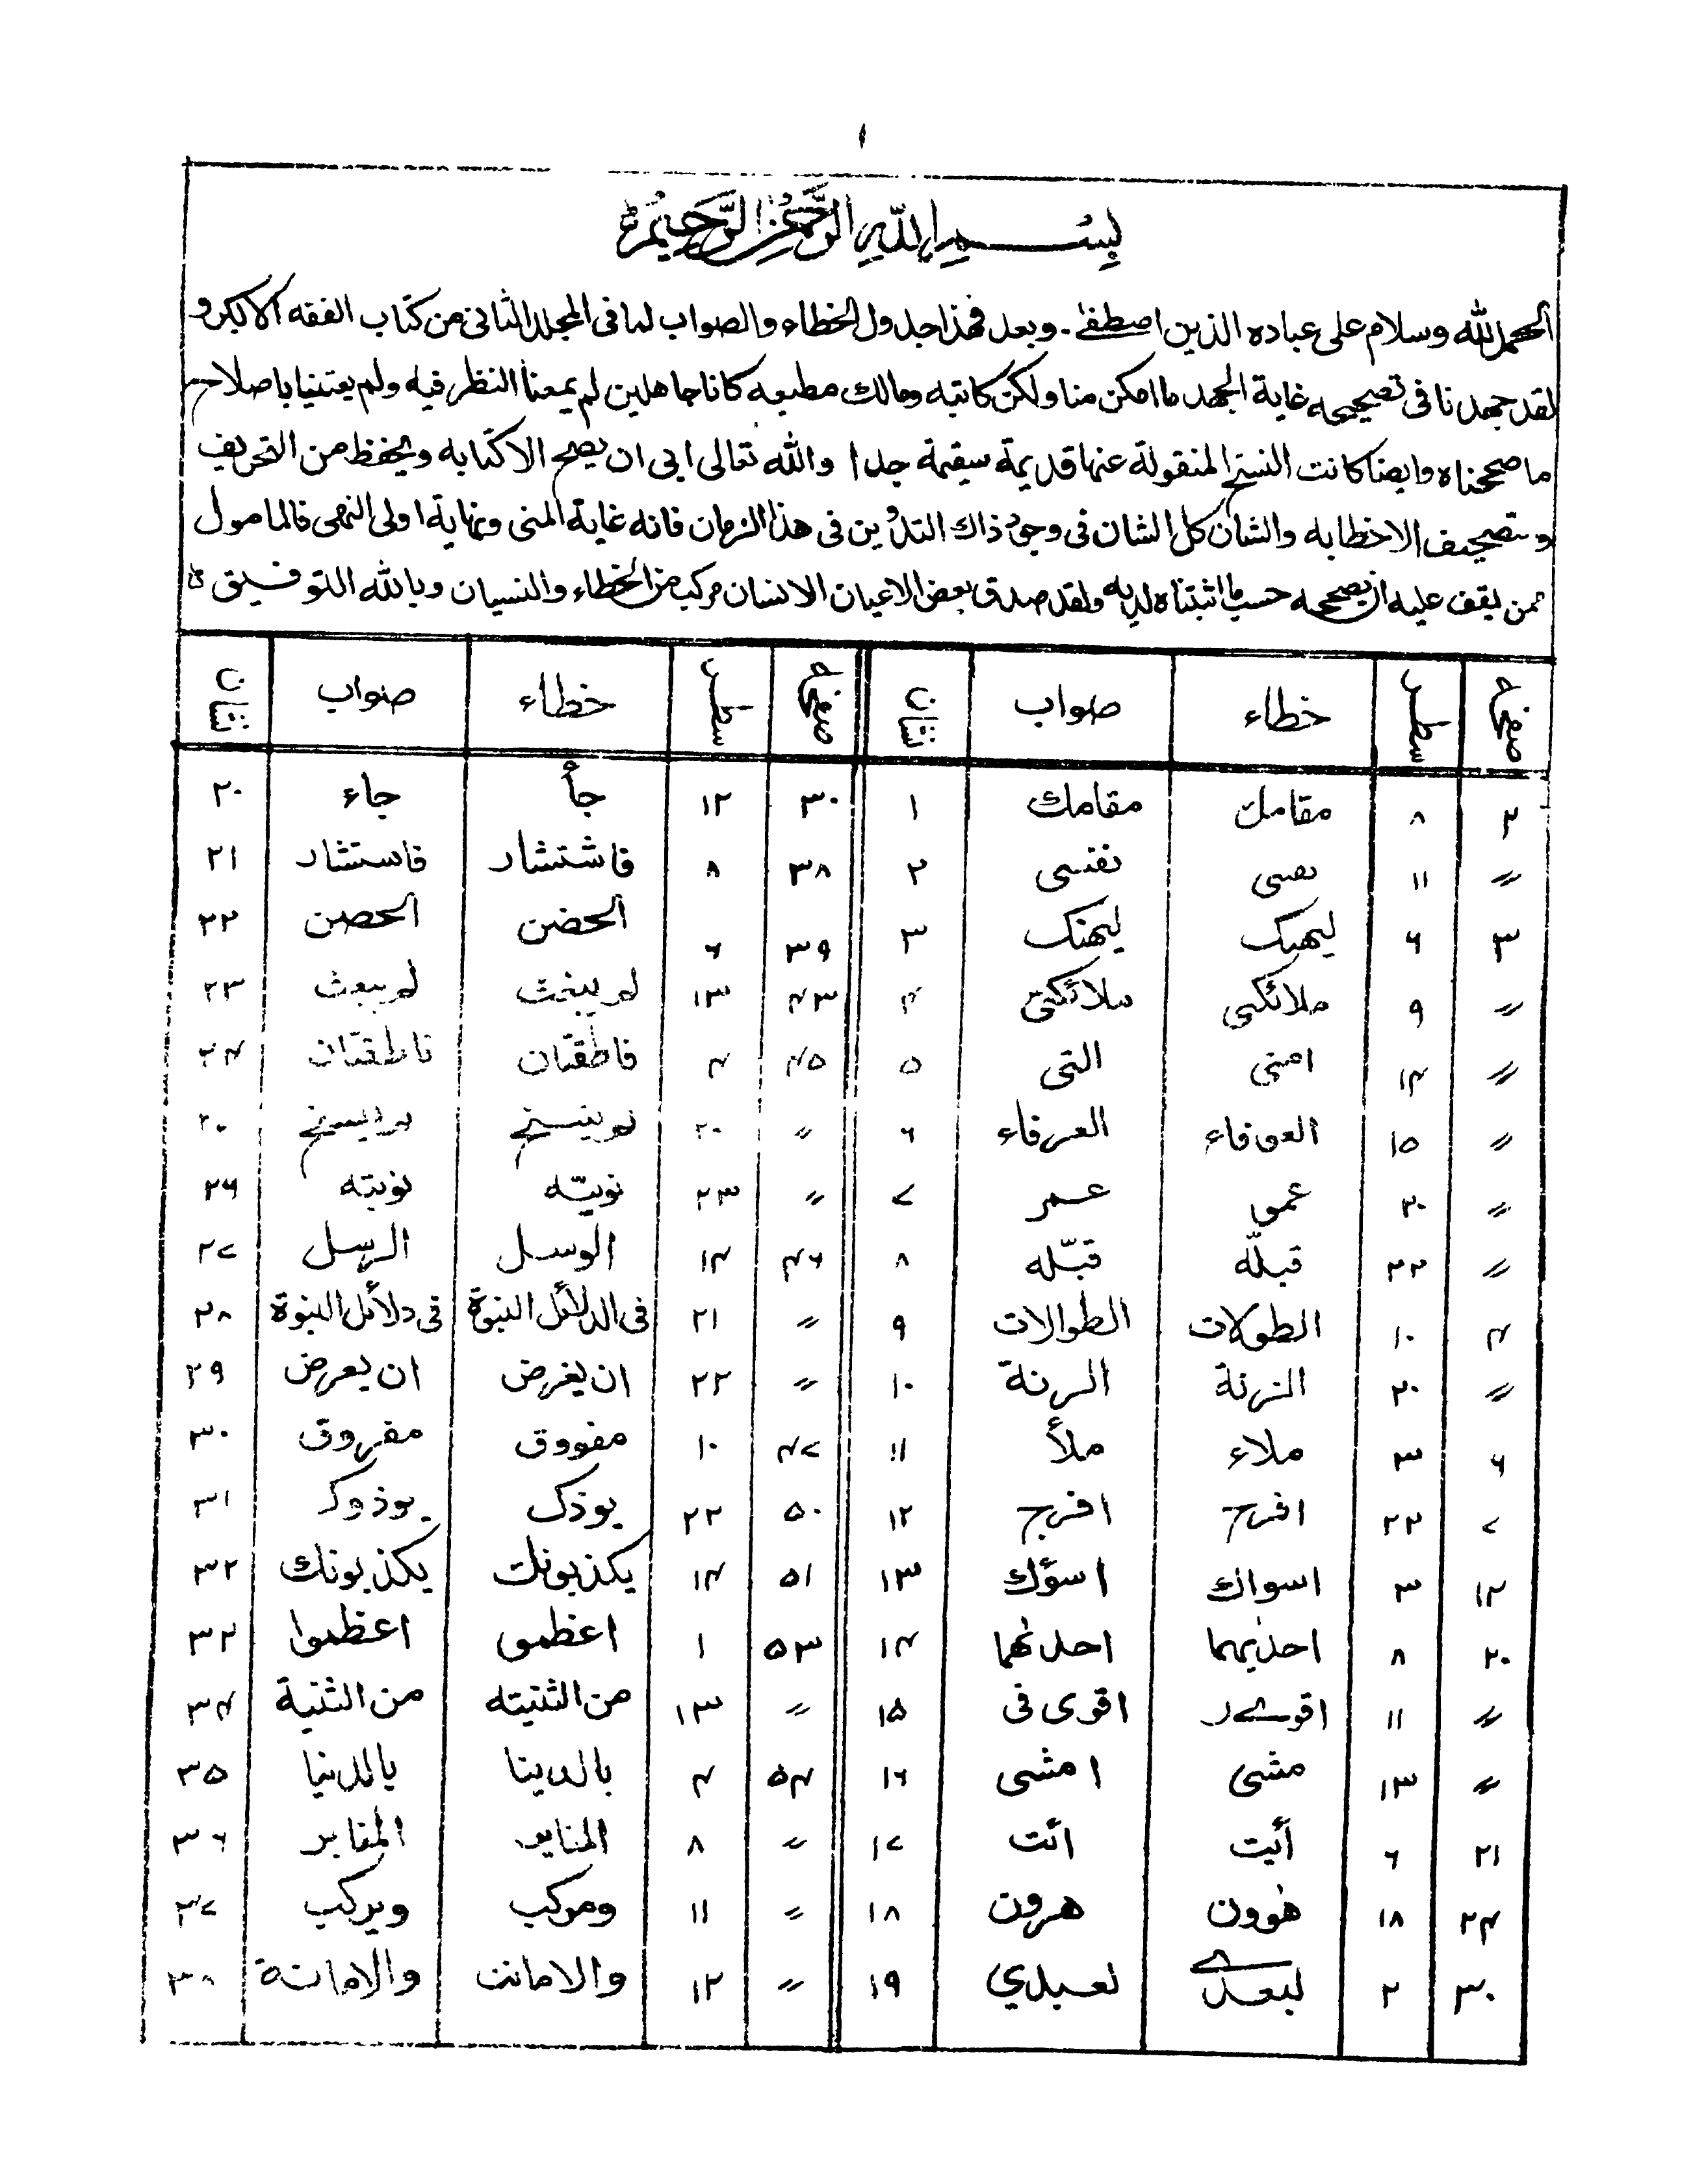 ١
بسم الله الرحمن الرحيم
الحمد لله وسلام على عباده الذين اصطفے۔ وبعد فهذا جدول الخطاء والصواب لما فى المجلد الثانى من كتاب الفقه الاكبر و
لقد جهدنا فى تصحيحه غاية الجهد ما امكن منا ولكن كاتبه ومالك مطبعه كانا جاهلين لم يمعنا النظر فيه ولم يعتنيا باصلاح
ما صححناه وايضا كانت النسخ المنقولة عنها قديمة سقيمة جدا والله تعالى ابى ان يصح الا كتابه ويحفظ من التحريف
وتصحيف الا خطابه والشان كل الشان فى وجود ذاك التدوين فى هذا الزمان فانه غاية المنى ونهاية اولى النهى فالمامول
ممن يقف عليه ان يصححه حسب ما اثبتناه لديه ولقد صدق بعض الاعيان الانسان مركب من الخطاء والنسيان وبالله التوفيق ة
صفحه سطر خطاء صواب نشان صفحه سطر خطاء صواب نشان
٢ ٨ مقامل مقامك ١ ٣٠ ١٢ جأ جاء ٢٠
〃 ١١ نفسى ٢ ٣٨ ٨ فاشتشار فاستشار ٢١
٣ ٦ ليهبك ليهنك ٣ ٣٩ ٦ الحضن الحصن ٢٢
〃 ٩ ملائكى ملائكتى ۴ ۴٣ ١٣ لم يبغث لم يبعث ٢٣
〃 ١۴ امتى التى ٥ ۴٥ ۴ فاطقتان ناطقتان ٢۴
〃 ١٥ العوفاء العرفاء ٦ 〃 ٢٠
〃 ٢٠ عمو عمر ٧ 〃 ٢٣ نوبيّه نوبته ٢٦
〃 ٢٢ قبلّه قبّله ٨ ۴٦ ١۴ الوسل الرسل ٢٧
۴ ١٠ الطولات الطوالات ٩ 〃 ٢١ فى الدلائل النبوة فى دلائل النبوة ٢٨
〃 ٢٠ الزنة الرنة ١٠ 〃 ٢٢ ان يغرض ان يعرض ٢٩
٦ ٣ ملاء ملأ ١١ ۴٧ ١٠ مفووق مفروق ٣٠
٧ ٢٢ افرح افرج ١٢ ٥٠ ٢٢ يوذك يوذوك ٣١
١٢ ٣ اسواك اسؤك ١٣ ٥١ ١۴ يكذبونك يكذبونك ٣٢
٢٠ ٨ احديهما احدىٰهما ١۴ ٥٣ ١ اعظمو اعظموا ٣٣
〃 ١١ اقوى فى ١٥ 〃 ١٣ من الثنيته من الثنية ٣۴
〃 ١٣ مشى امشى ١٦ ٥۴ ۴ بالدينا بالدنيا ٣٥
٢١ ٦ أيت ائت ١٧ 〃 ٨ المنابو المنابر ٣٦
٢۴ ١٨ هوون هرون ١٨ 〃 ١١ ومركب ويركب ٣٧
٣٠ ٢ لبعدے لعبدي ١٩ 〃 ١٢ والامانت والامانة ٣٨